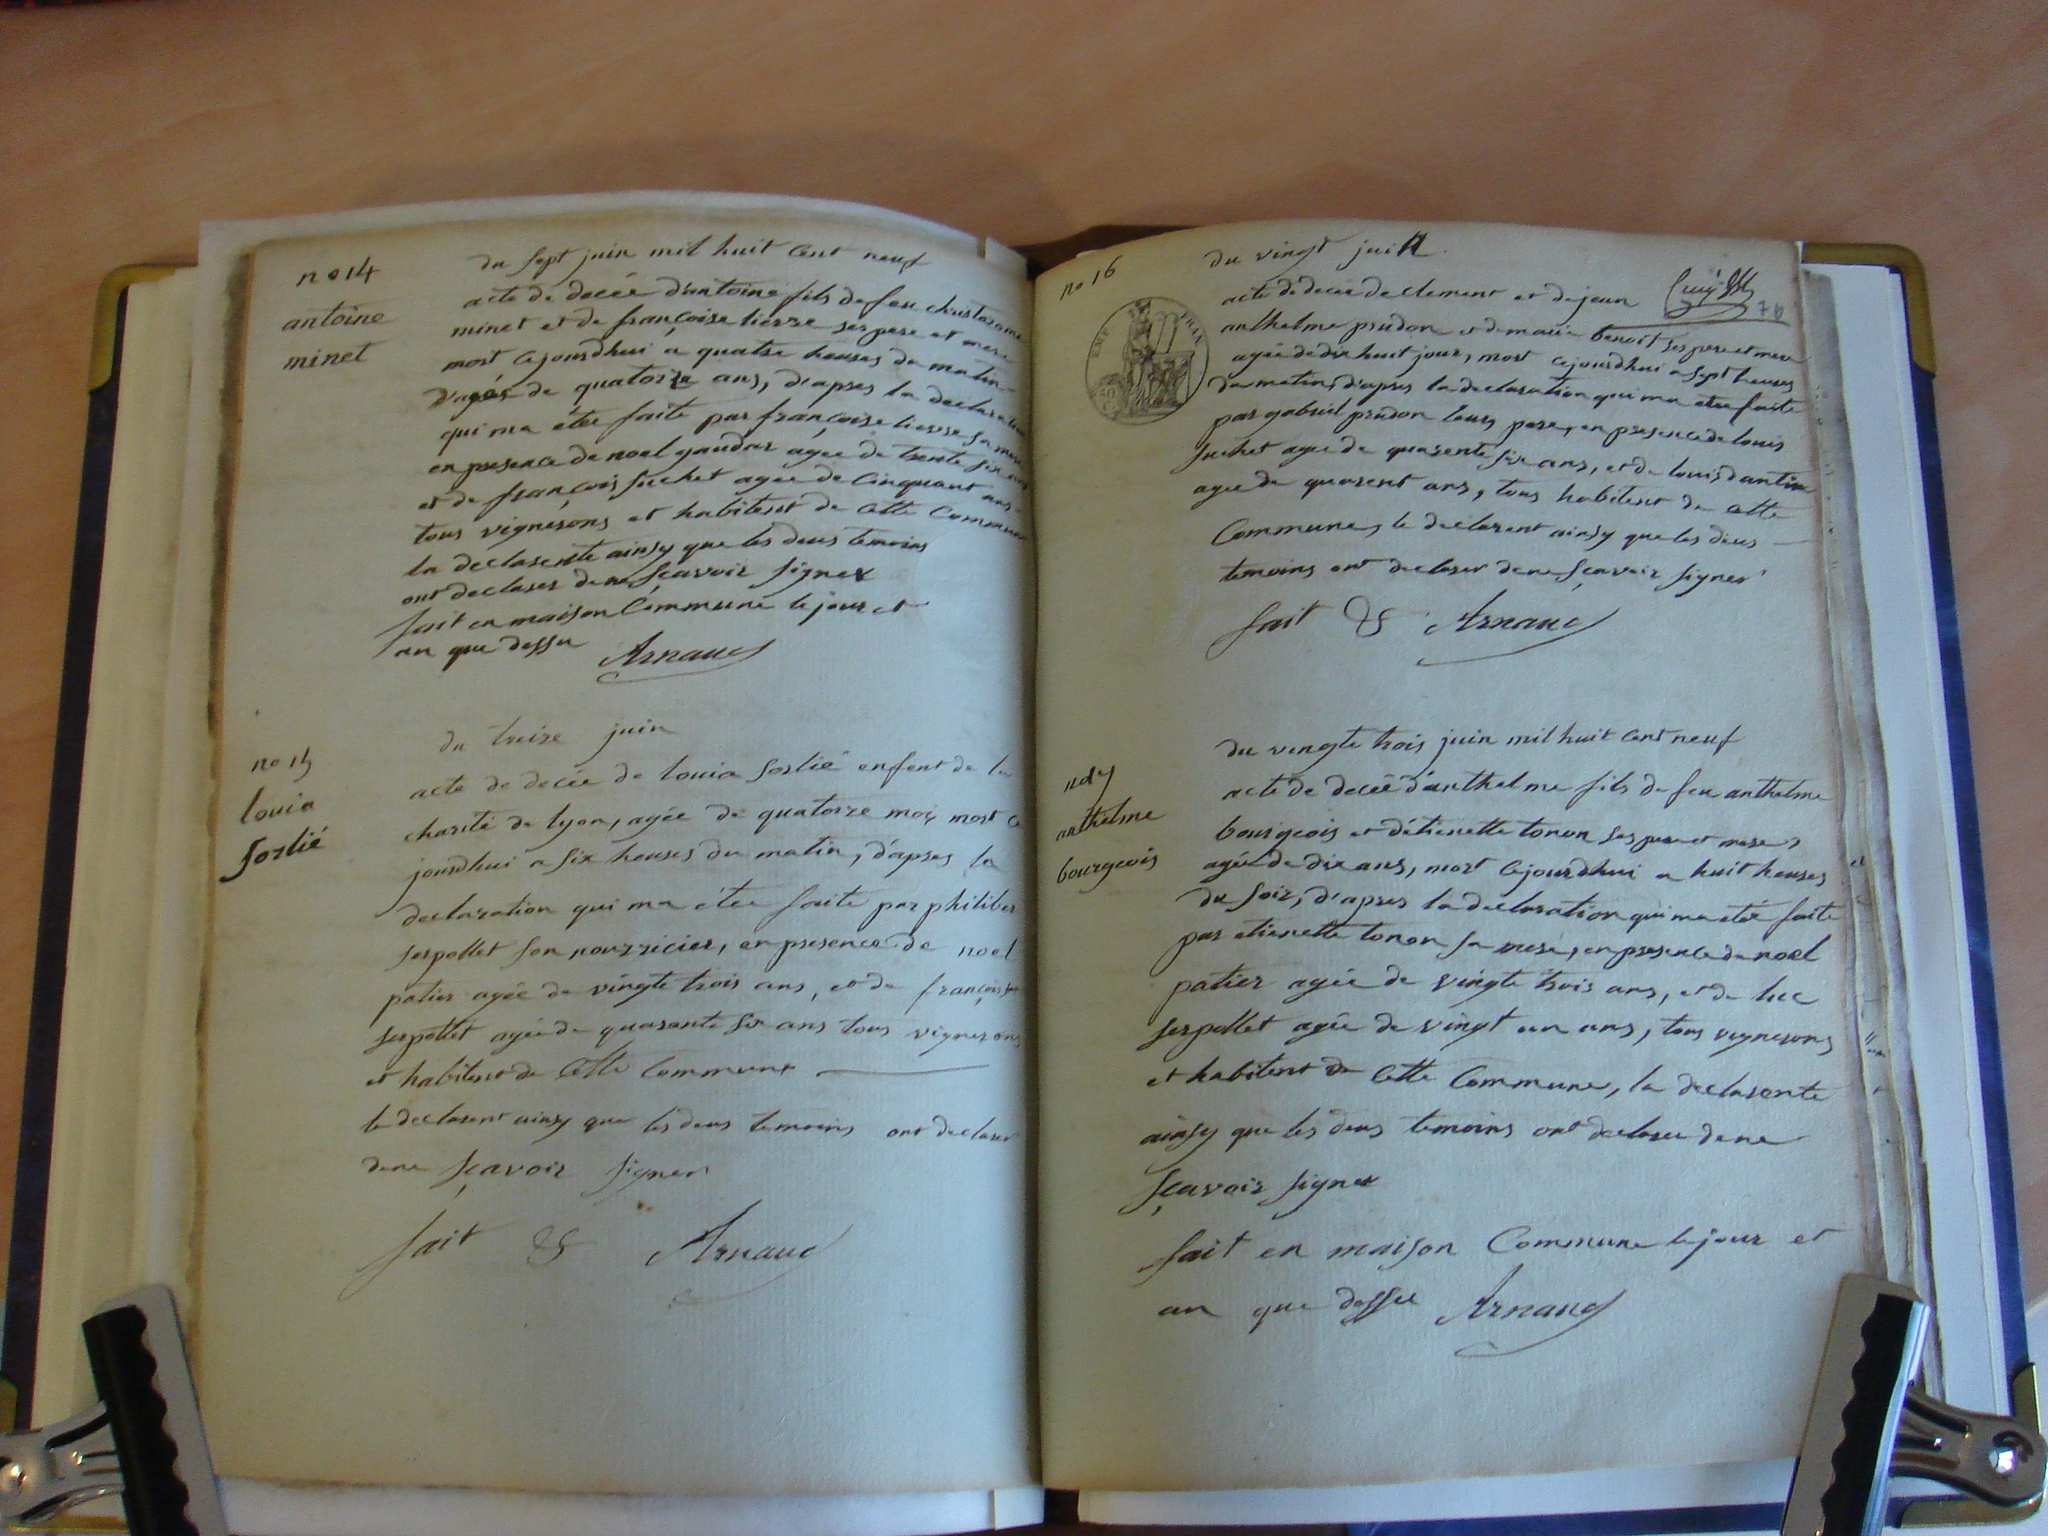 no 14
antoine
minet
du sept juin mil huit cent neuf
acte de decée d'antoine fils de feu christofome
minet et de françoise tierre ses pere et mere
mort cejourdhui a quatre heures du matin
d'agée de quatorze ans, d'apres la declaration
qui ma étée faite par françoise tierre sa mere
en presence de noel gaudar agée de trente six ans
et de françois suchet agée de cinquant ans
tous vignerons et habitent de cette commune
la declarente ainsy que les deus temoins
ont declarer de ne sçavoir signer
fait en maison commune le jour et
an que dessu Arnaud
no 15
louis
sorlié
du treize juin
acte de decée de louis sorlié enfent de la
charité de lyon, agée de quatorze mois mort ce
jourdhui a six heures du matin, d'apres la
declaration qui ma étée faite par philiber
serpollet son nourricier, en presence de noel
patier agée de vingte trois ans, et de françois
serpollet agée de quarante six ans tous vignerons
et habitent de cette commune
le declarent ainsy que les deus temoins ont declarer
de ne sçavoir signer
fait & Arnaud
no 16
EMP FRAN
du vingt juin
acte de decée de clement et de jean
74
anthelme prudon et de marie benoit ses pere et mere
agée de dix huit jour, mort cejourdhui a sept heures
du matin, d'apres la declaration qui ma étée faite
par gabriel prudon leurs pere, en presence de louis
suchet agée de quarente six ans, et de louis dantin
agée de quarent ans, tous habitent de cette
commune, le declarent ainsy que les deus
temoins ont declarer de ne sçavoir signer
fait & Arnaud
anthelme
bourgeois
du vingte trois juin mil huit cent neuf
acte de decée d'anthelme fils de feu anthelme
bourgeois et d'étienette tonon ses pere et mere,
agée de dix ans, mort cejourdhui a huit heures
du soir, d'apres la declaration qui ma étée faite
par etienette tonon sa mere, en presence de noel
patier agée de vingte trois ans, et de luc
serpollet agée de vingt un ans, tous vignerons
et habitent de cette commune, la declarente
ainsy que les deus temoins ont declarer de ne
sçavoir signer
fait en maison commune le jour et
an que dessu Arnaud